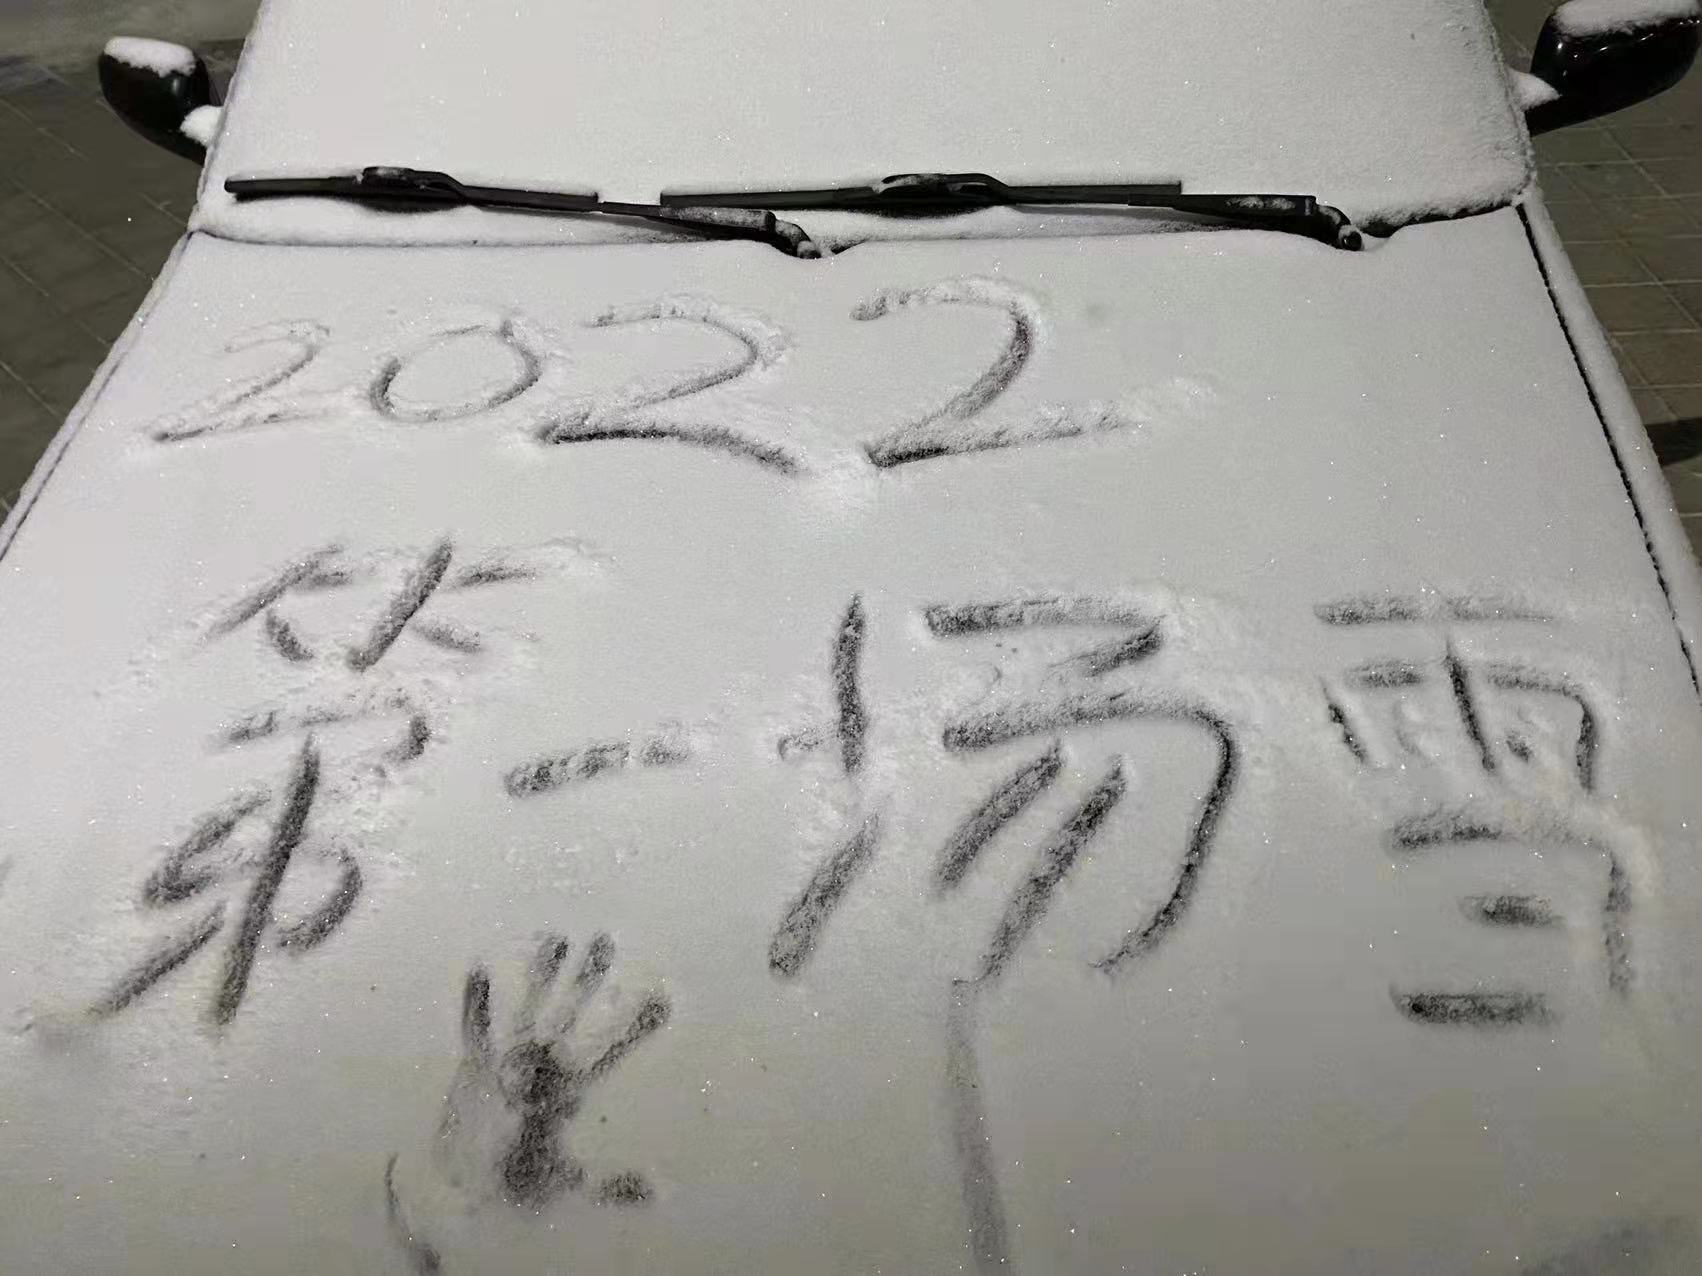 2022
第一场雪